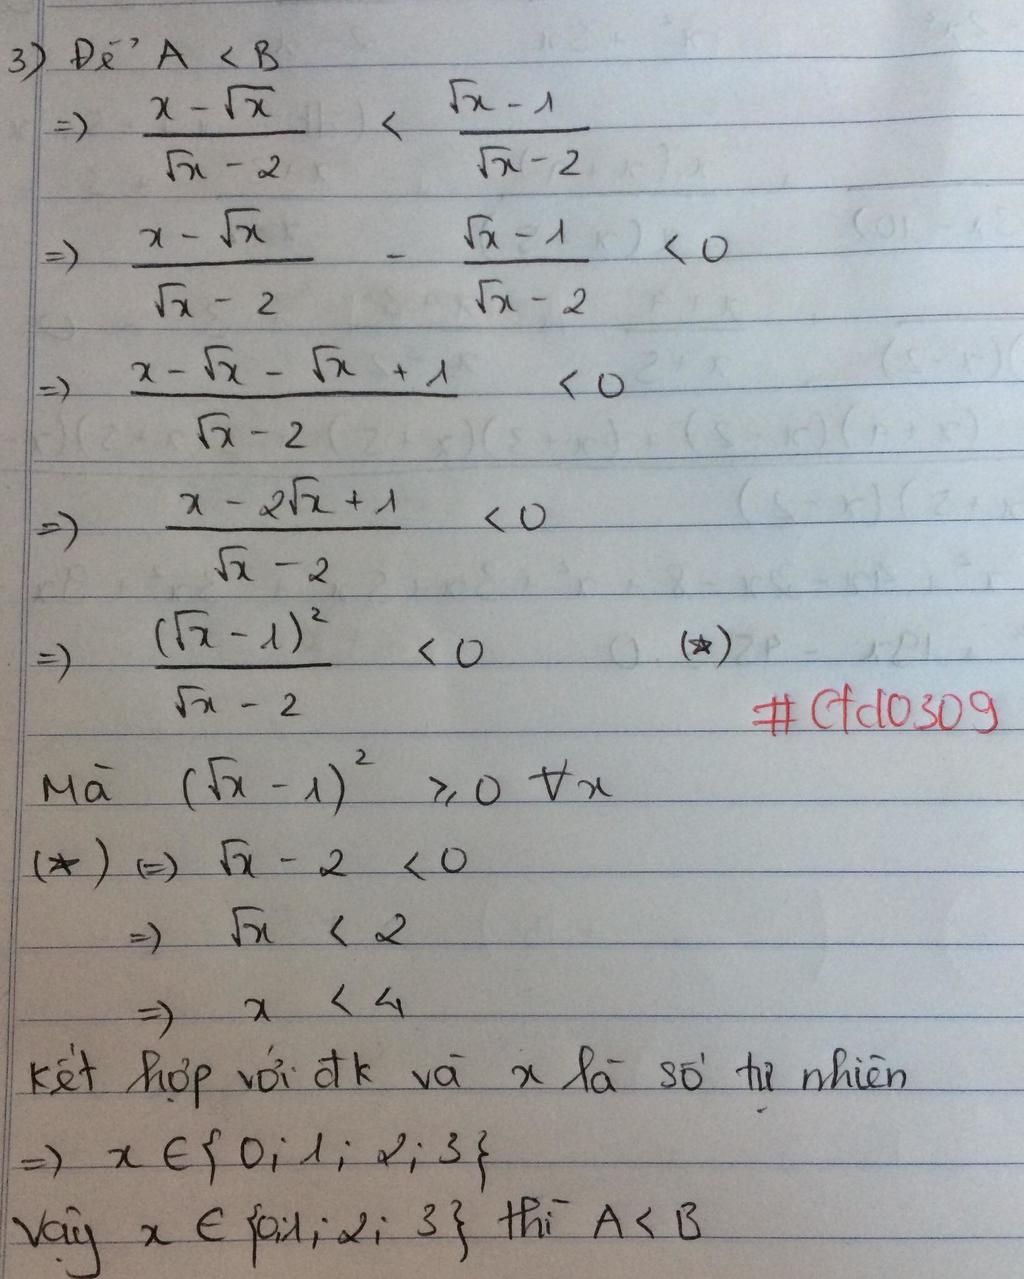 3) Để A < B
=> x - √x / √x - 2 < √x - 1 / √x - 2
=> x - √x / √x - 2 - √x - 1 / √x - 2 < 0
=> x - √x - √x + 1 / √x - 2 < 0
=> x - 2√x + 1 / √x - 2 < 0
=> (√x - 1)² / √x - 2 < 0 (*)
#Cfcl0309
Mà (√x - 1)² ⩾ 0 ∀x
(*) (=) √x - 2 < 0
=> √x < 2
=> x < 4
kết hợp với đk và x là số tự nhiên
=> x ∈ { 0; 1; 2; 3 }
Vậy x ∈ {0;1; 2; 3 } thì A < B